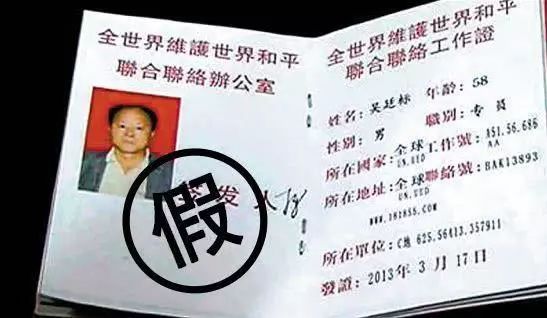 全世界維護世界和平
聯合聯絡辦公室
签发
假
全世界維護世界和平
聯合聯絡工作證
姓名:吴廷标 年龄:58
性别:男 職別:专员
所在國家:全球工作號:A51.56.686
UN.UED AA
所在地址:全球聯絡號:BAK13893
UN.UED
www.181855.COM
所在單位:C地 625.56413.357911
發證:2013年3月17日